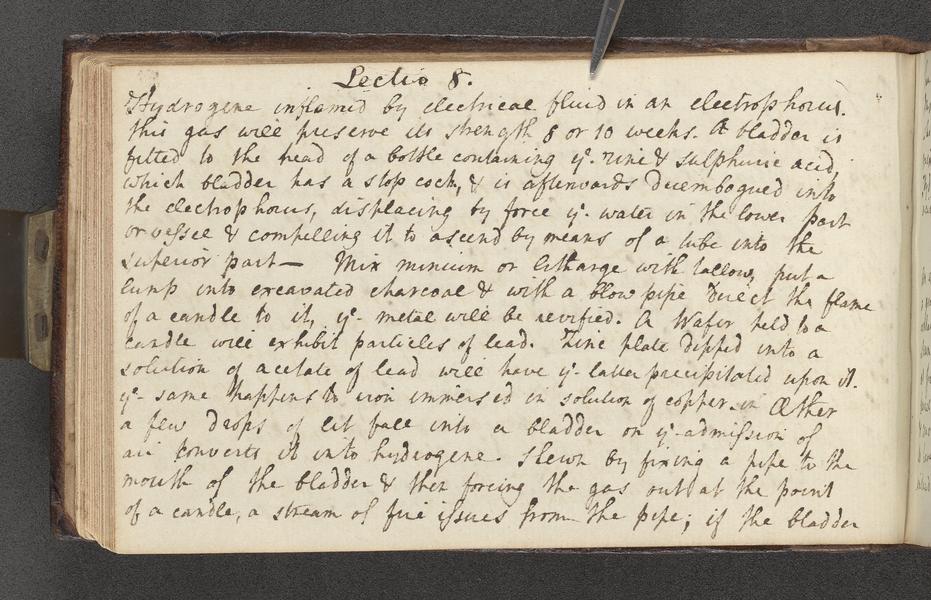 Lectio 8.
Hydrogene inflamed by electrical fluid in an electrophorus.
this gas will preserve its strength 8 or 10 weeks. A bladder is
fitted to the head of a bottle containing yͤ. zinc & sulphuric acid,
which bladder has a stop cock, & is afterwards disembogued into
the electrophorus, displacing by force yͤ. water in the lower part
or vessel & compelling it to ascend by means of a tube into the
superior part — Mix minium or litharge with tallow, put a
lump into excavated charcoal & with a blow pipe direct the flame
of a candle to it, yͤ- metal will be revified. A Wafer held to a
candle will exhibit particles of lead. Zinc plate dipped into a
solution of acetate of lead will have yͤ- latter precipitated upon it.
yͤ- same happens to iron immersed in solution of copper. in Æther
a few drops of let fall into a bladder on yͤ- admission of
air converts it into hydrogene. Shewn by fixing a pipe to the
mouth of the bladder & then forcing the gas out at the point
of a candle, a stream of fire issues from the pipe; if the bladder